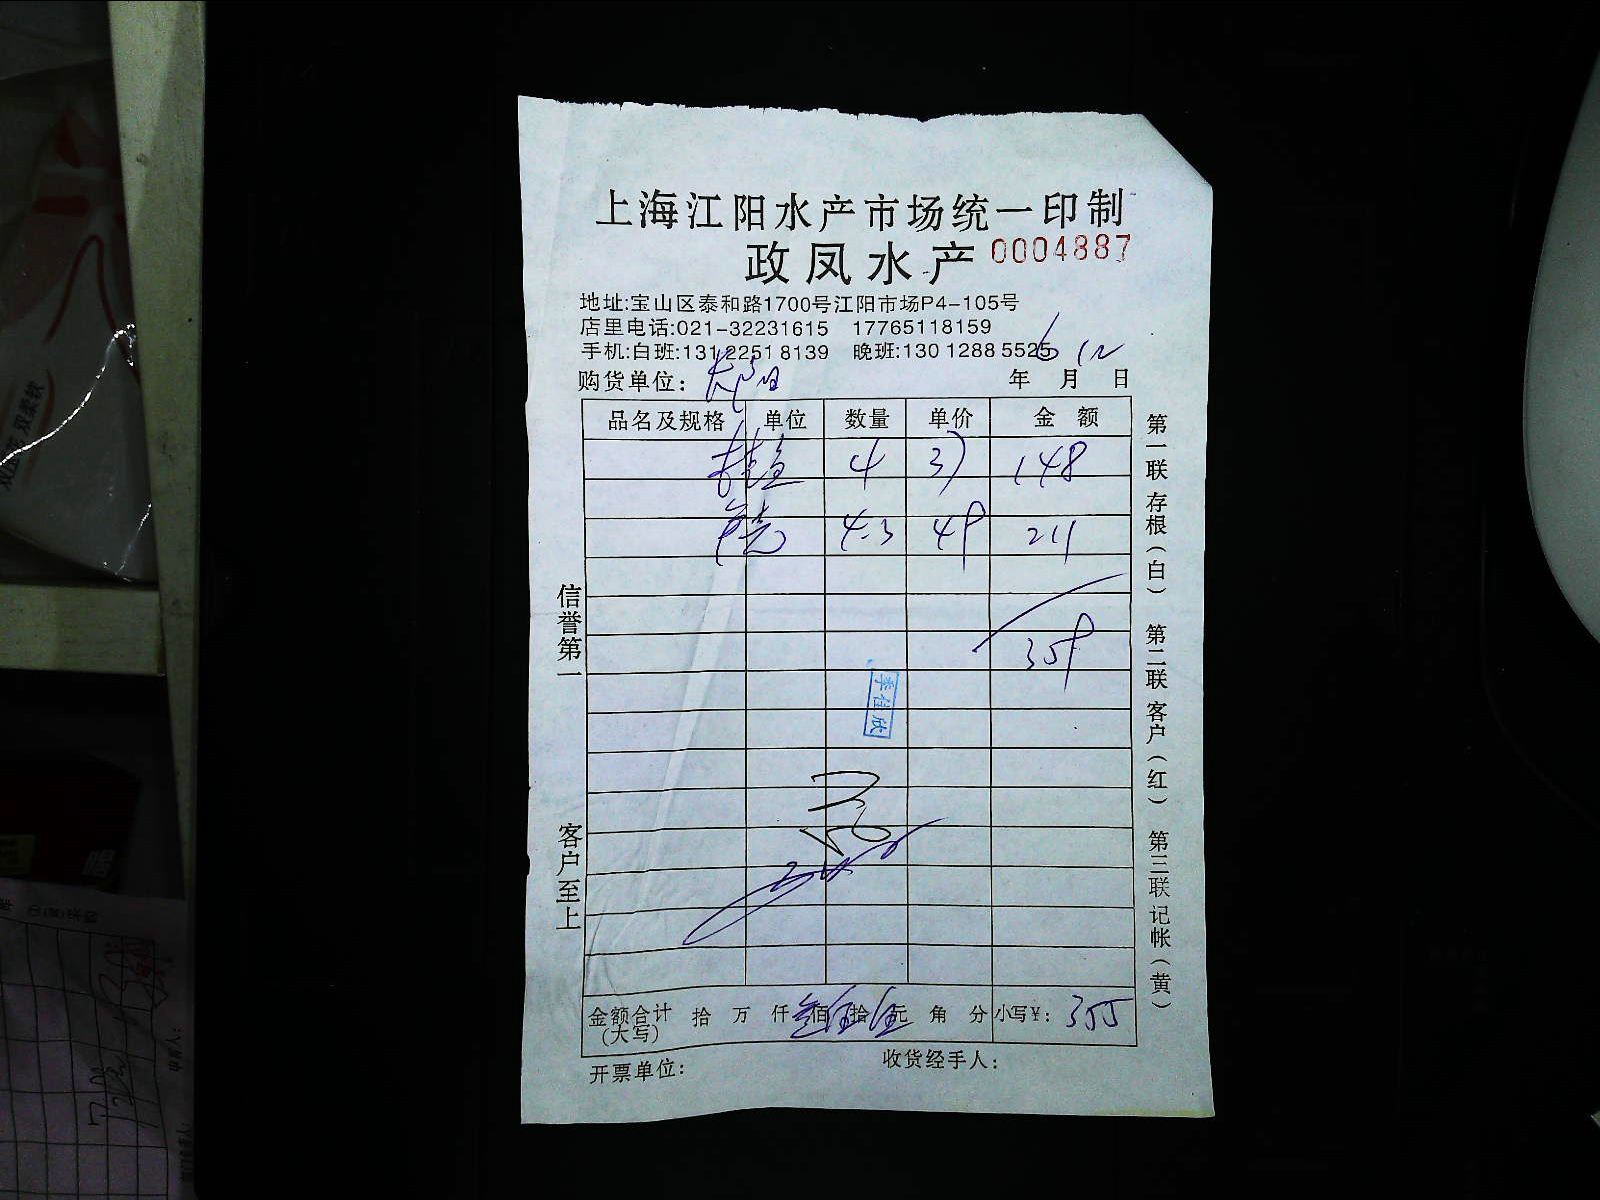 上海江阳水产市场统一印制
政凤水产 0004887
地址:宝山区泰和路1700号江阳市场P4-105号
店里电话:021-32231615 17765118159
手机:白班:131 2251 8139 晚班:130 1288 5525
6 12
购货单位: 年 月 日
品名及规格 单位 数量 单价 金额
桂鱼 4 37 148
4.3 49 211
359
季佳欣
信誉第一
客户至上
第一联存根(白) 第二联客户(红) 第三联记帐(黄)
金额合计(大写) 拾 万 仟 佰 拾 元 角 分 小写¥: 355
开票单位: 收货经手人:
双柔软